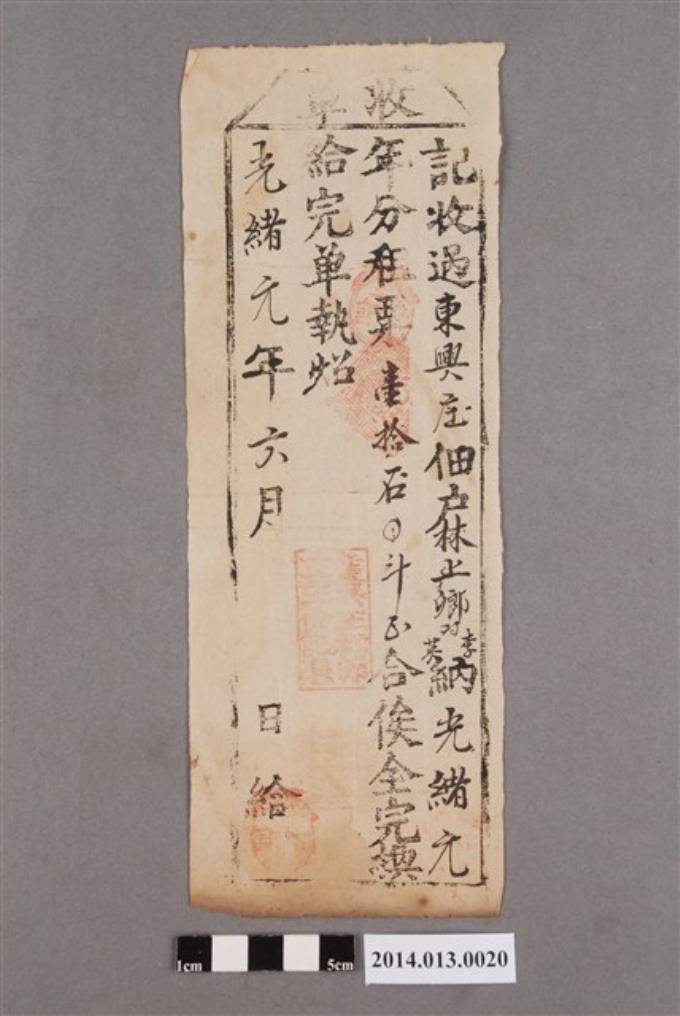 收單
記收過東興庄佃戶林止鄉对李英納光緒元
年分租粟壹拾石〇斗正合俟全完繳
給完单執炤
光緒元年六月 日給
1cm 5cm
2014.013.0020